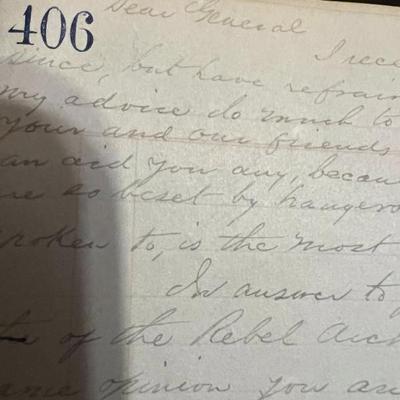 406
Dear General
I rece
since, but have refrain
my advice do much to
your and our friends
an aid you any, becau
so beset by hangero
spoken to, is the most
In answer to
of the Rebel Arch
same opinion you an